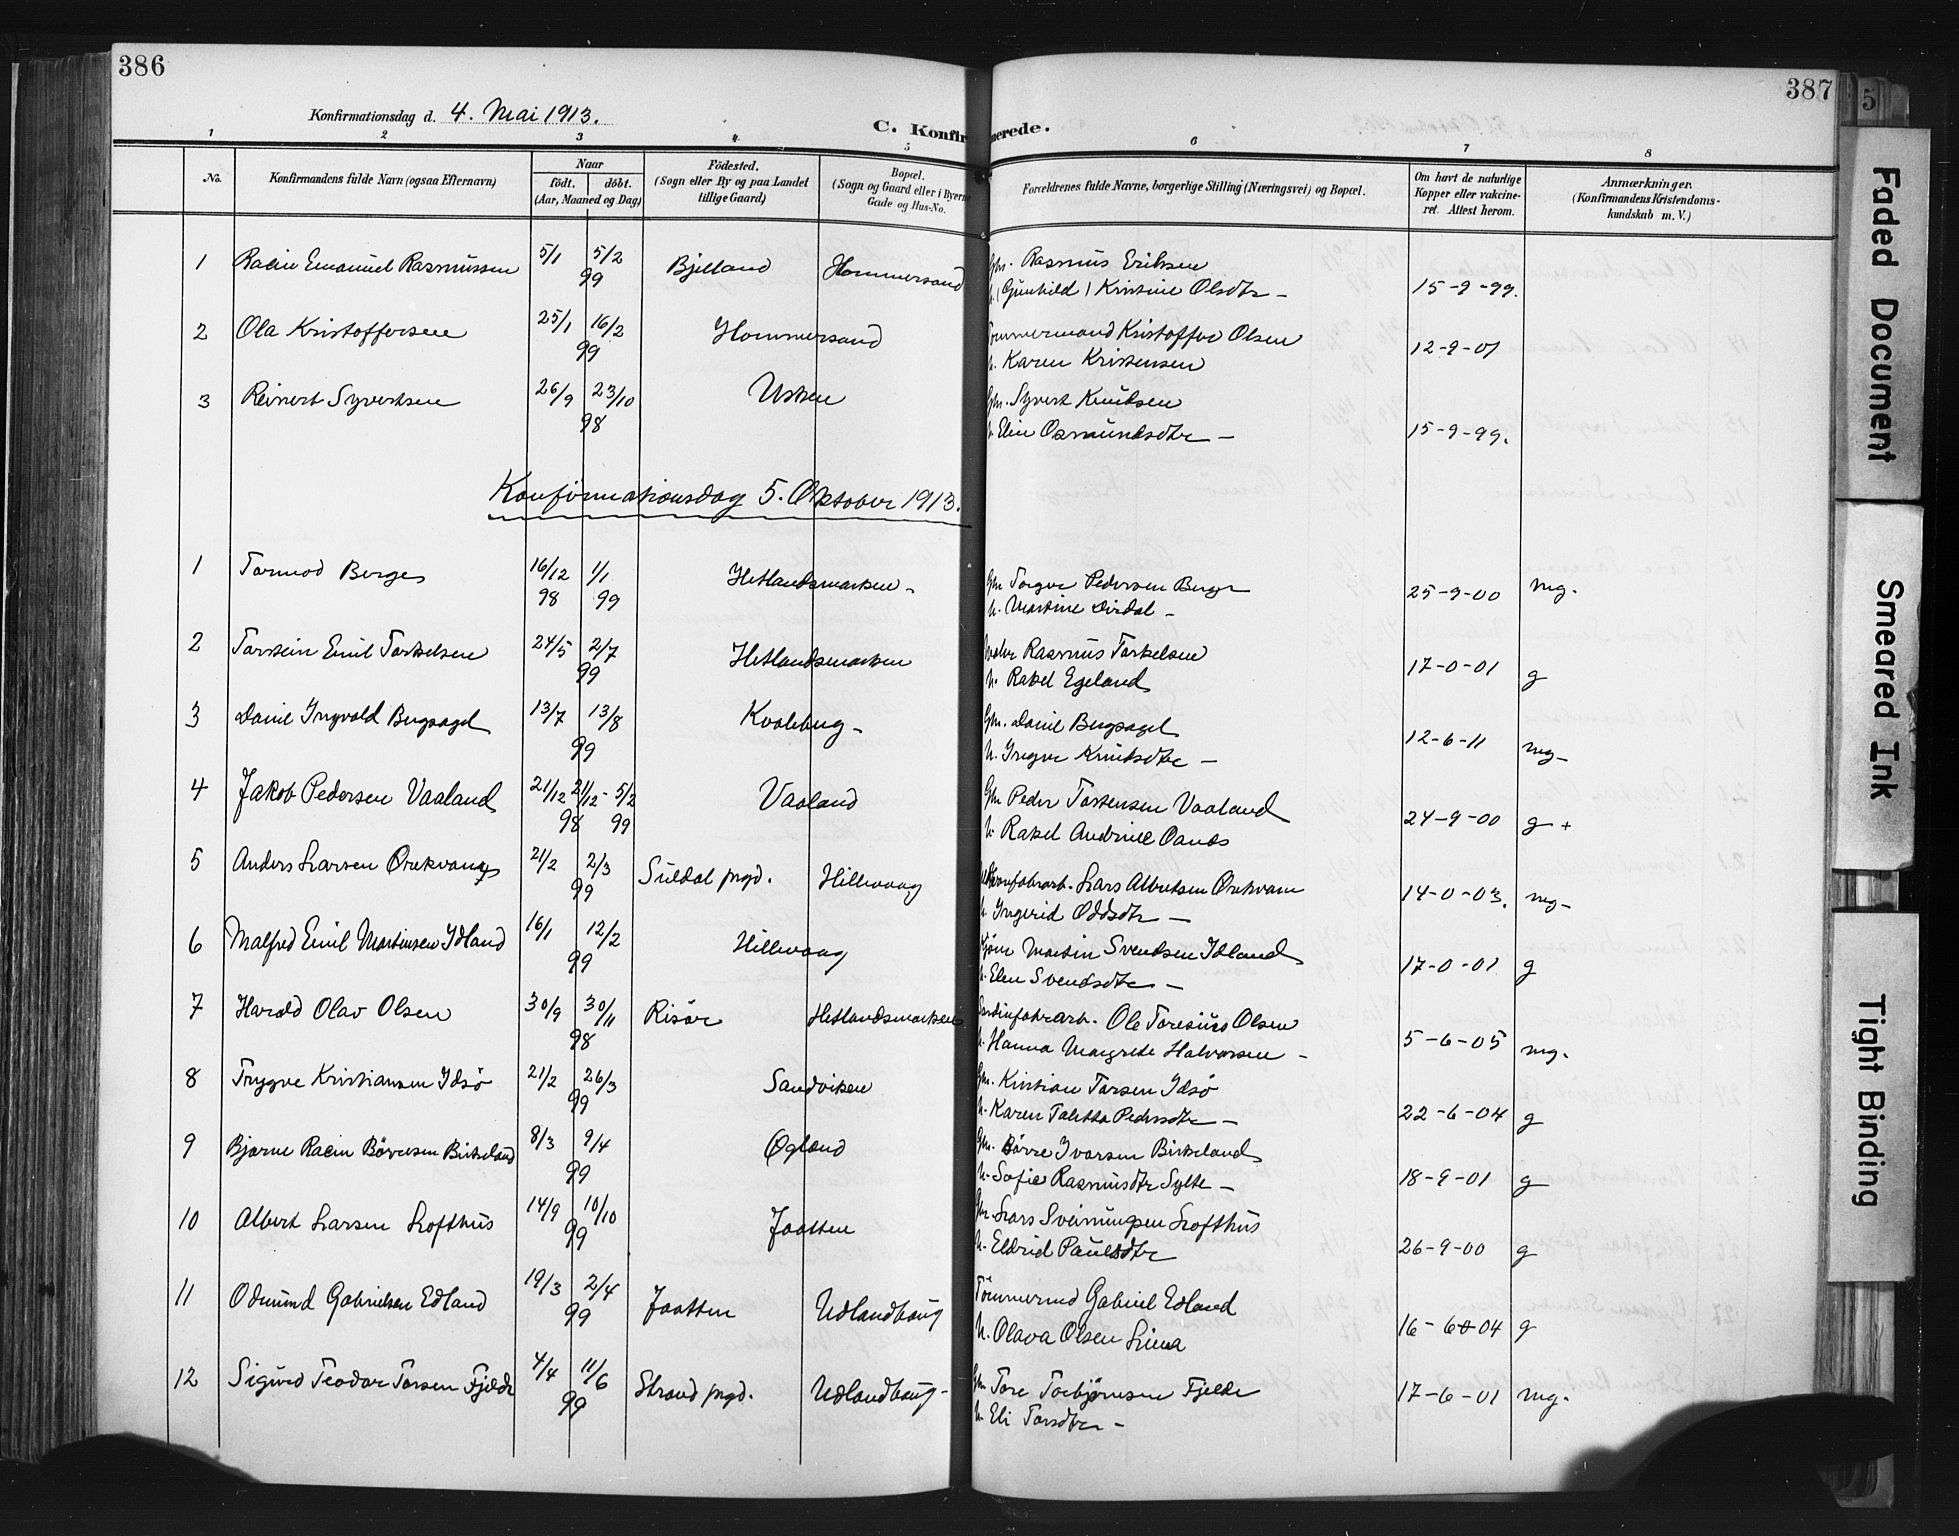 386
387
Konfirmationsdag d. 4. Mai 1913.
C. Konfirmerede.
1 2 3 4 5 6 7 8
No.
Konfirmandens fulde Navn (ogsaa Efternavn)
Naar
født. døbt.
(Aar, Maaned og Dag)
Fødested.
(Sogn eller By og paa Landet
tillige Gaard)
Bopæl.
(Sogn og Gaard eller i Byerne
Gade og Hus-No.
Forældrenes fulde Navne, borgerlige Stilling (Næringsvei) og Bopæl.
Om havt de naturlige
Kopper eller vakcine-
ret. Attest herom.
Anmærkninger.
(Konfirmandens Kristendoms-
kundskab m. V.)
1 Rasmus Eriksen
5/1 5/2 Bjelland Hommersand
99 (Gunhild) Kristine Olsdtr - 15-9-99.
2 Ola Kristoffersen 25/1 16/2 Hommersand Tømmermand Kristoffer Olsen
99 Karen Kristensen 12-9-01
3 Reinert Syvertsen 26/9 23/10 Usken Gm. Syvert Knutsen
98 Elin Osmundsdtr - 15-9-99.
Konfirmationsdag 5. Oktober 1913.
1 Tormod Berge 16/12 1/1 Hetlandsmarken - Gm Torger Pedersen Berge mg.
98 99 u. Martine Dirdal - 25-9-00
2 Torstein Emil Torkelsen 24/5 2/7 Hetlandsmarken Rasmus Torkelsen
99 u. Rakel Egeland 17-0-01 g
3 Daniel Ingvald Bergsagel 13/7 13/8 Kvaleberg - Gm. Daniel Bergsagel
99 u. Inger Knutsdtr - 12-6-11 mg-
4 Jakob Pedersen Vaaland 21/12 21/12 - 5/2 Vaaland Gm Peder Torstensen Vaaland
98 99 u. Rakel Andrine Oanes 24-9-00 g +
5 Anders Larsen Ørekvam 21/2 2/3 Suldal prgd. Hillevaag Lars Albretsen Ørekvam
99 u. Ingerid Oddsdtr - 14-0-03. mg-
6 Malfred Emil Martinsen Idland 16/1 12/2 Hillevaag Martin Svendsen Idland
99 u. Elen Svendsdtr - 17-0-01 g
7 Harald Olav Olsen 30/9 30/11 Risør Hetlandsmarken Sardinfabrarb. Ole Toresius Olsen
98 u. Hanna Margrete Halvorsen - 5-6-05 mg.
8 Trygve Kristiansen Idsø 21/2 26/3 Sandviken Gm. Kristian Torsen Idsø
99 u. Karen Taletta Pedersdtr - 22-6-04 g
9 Bjarne Racin Børresen Birkeland 8/3 9/4 Øgland Gm. Børre Ivarsen Birkeland
99 u. Sofie Rasmusdtr Sylte - 18-9-01 g
10 Albert Larsen Lofthus 14/9 10/10 Jaatten Gm. Lars Sveinungsen Lofthus
99 u. Eldrid Paulsdtr 26-9-00 g
11 Odmund Gabrielsen Edland 19/3 2/4 Jaatten Udlandhaug Tømmermd Gabriel Edland
99 u. Olava Olsen Lima 16-6-04 g
12 Sigurd Teodor Torsen Fjelde 4/4 11/6 Strand prgd. Udlandhaug - Gm Tore Torbjørnsen Fjelde
99 u. Eli Torsdtr - 17-6-01 mg.
5
Faded Document
Smeared Ink
Tight Binding